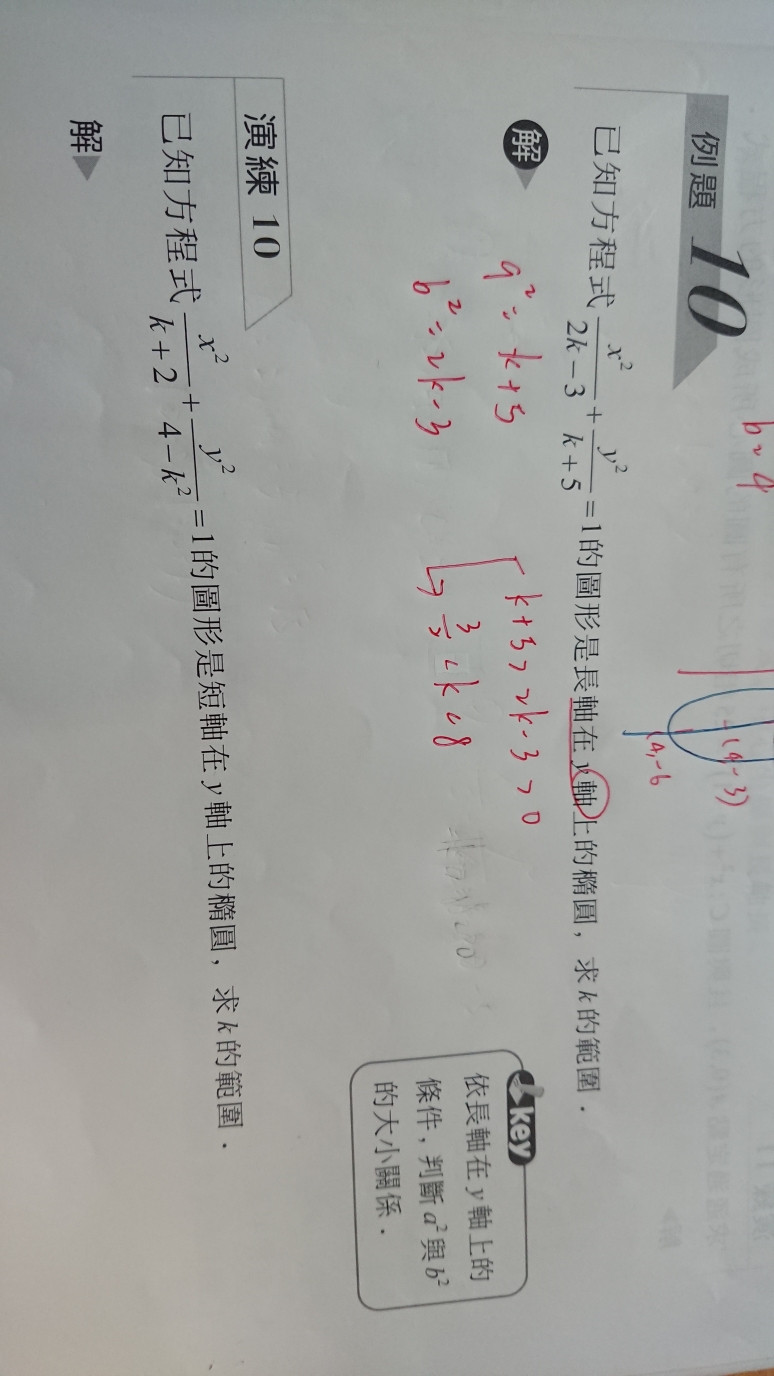 b = 4
(4, -3)
(4, -6
例題 10
已知方程式 x²/(2k-3) + y²/(k+5) = 1的圖形是長軸在 y 軸上的橢圓，求 k 的範圍．
解
a² = k+5
b² = 2k-3
k+5 > 2k-3 > 0
→ 3/2 < k < 8
key
依長軸在 y 軸上的
條件，判斷 a² 與 b²
的大小關係．
演練 10
已知方程式 x²/(k+2) + y²/(4-k²) = 1的圖形是短軸在 y 軸上的橢圓，求 k 的範圍．
解